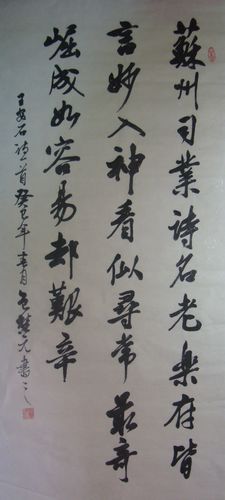 蘇州司業詩名老樂府皆
言妙入神看似尋常最奇
崛成如容易却艱辛
王安石詩一首癸巳年春月元書